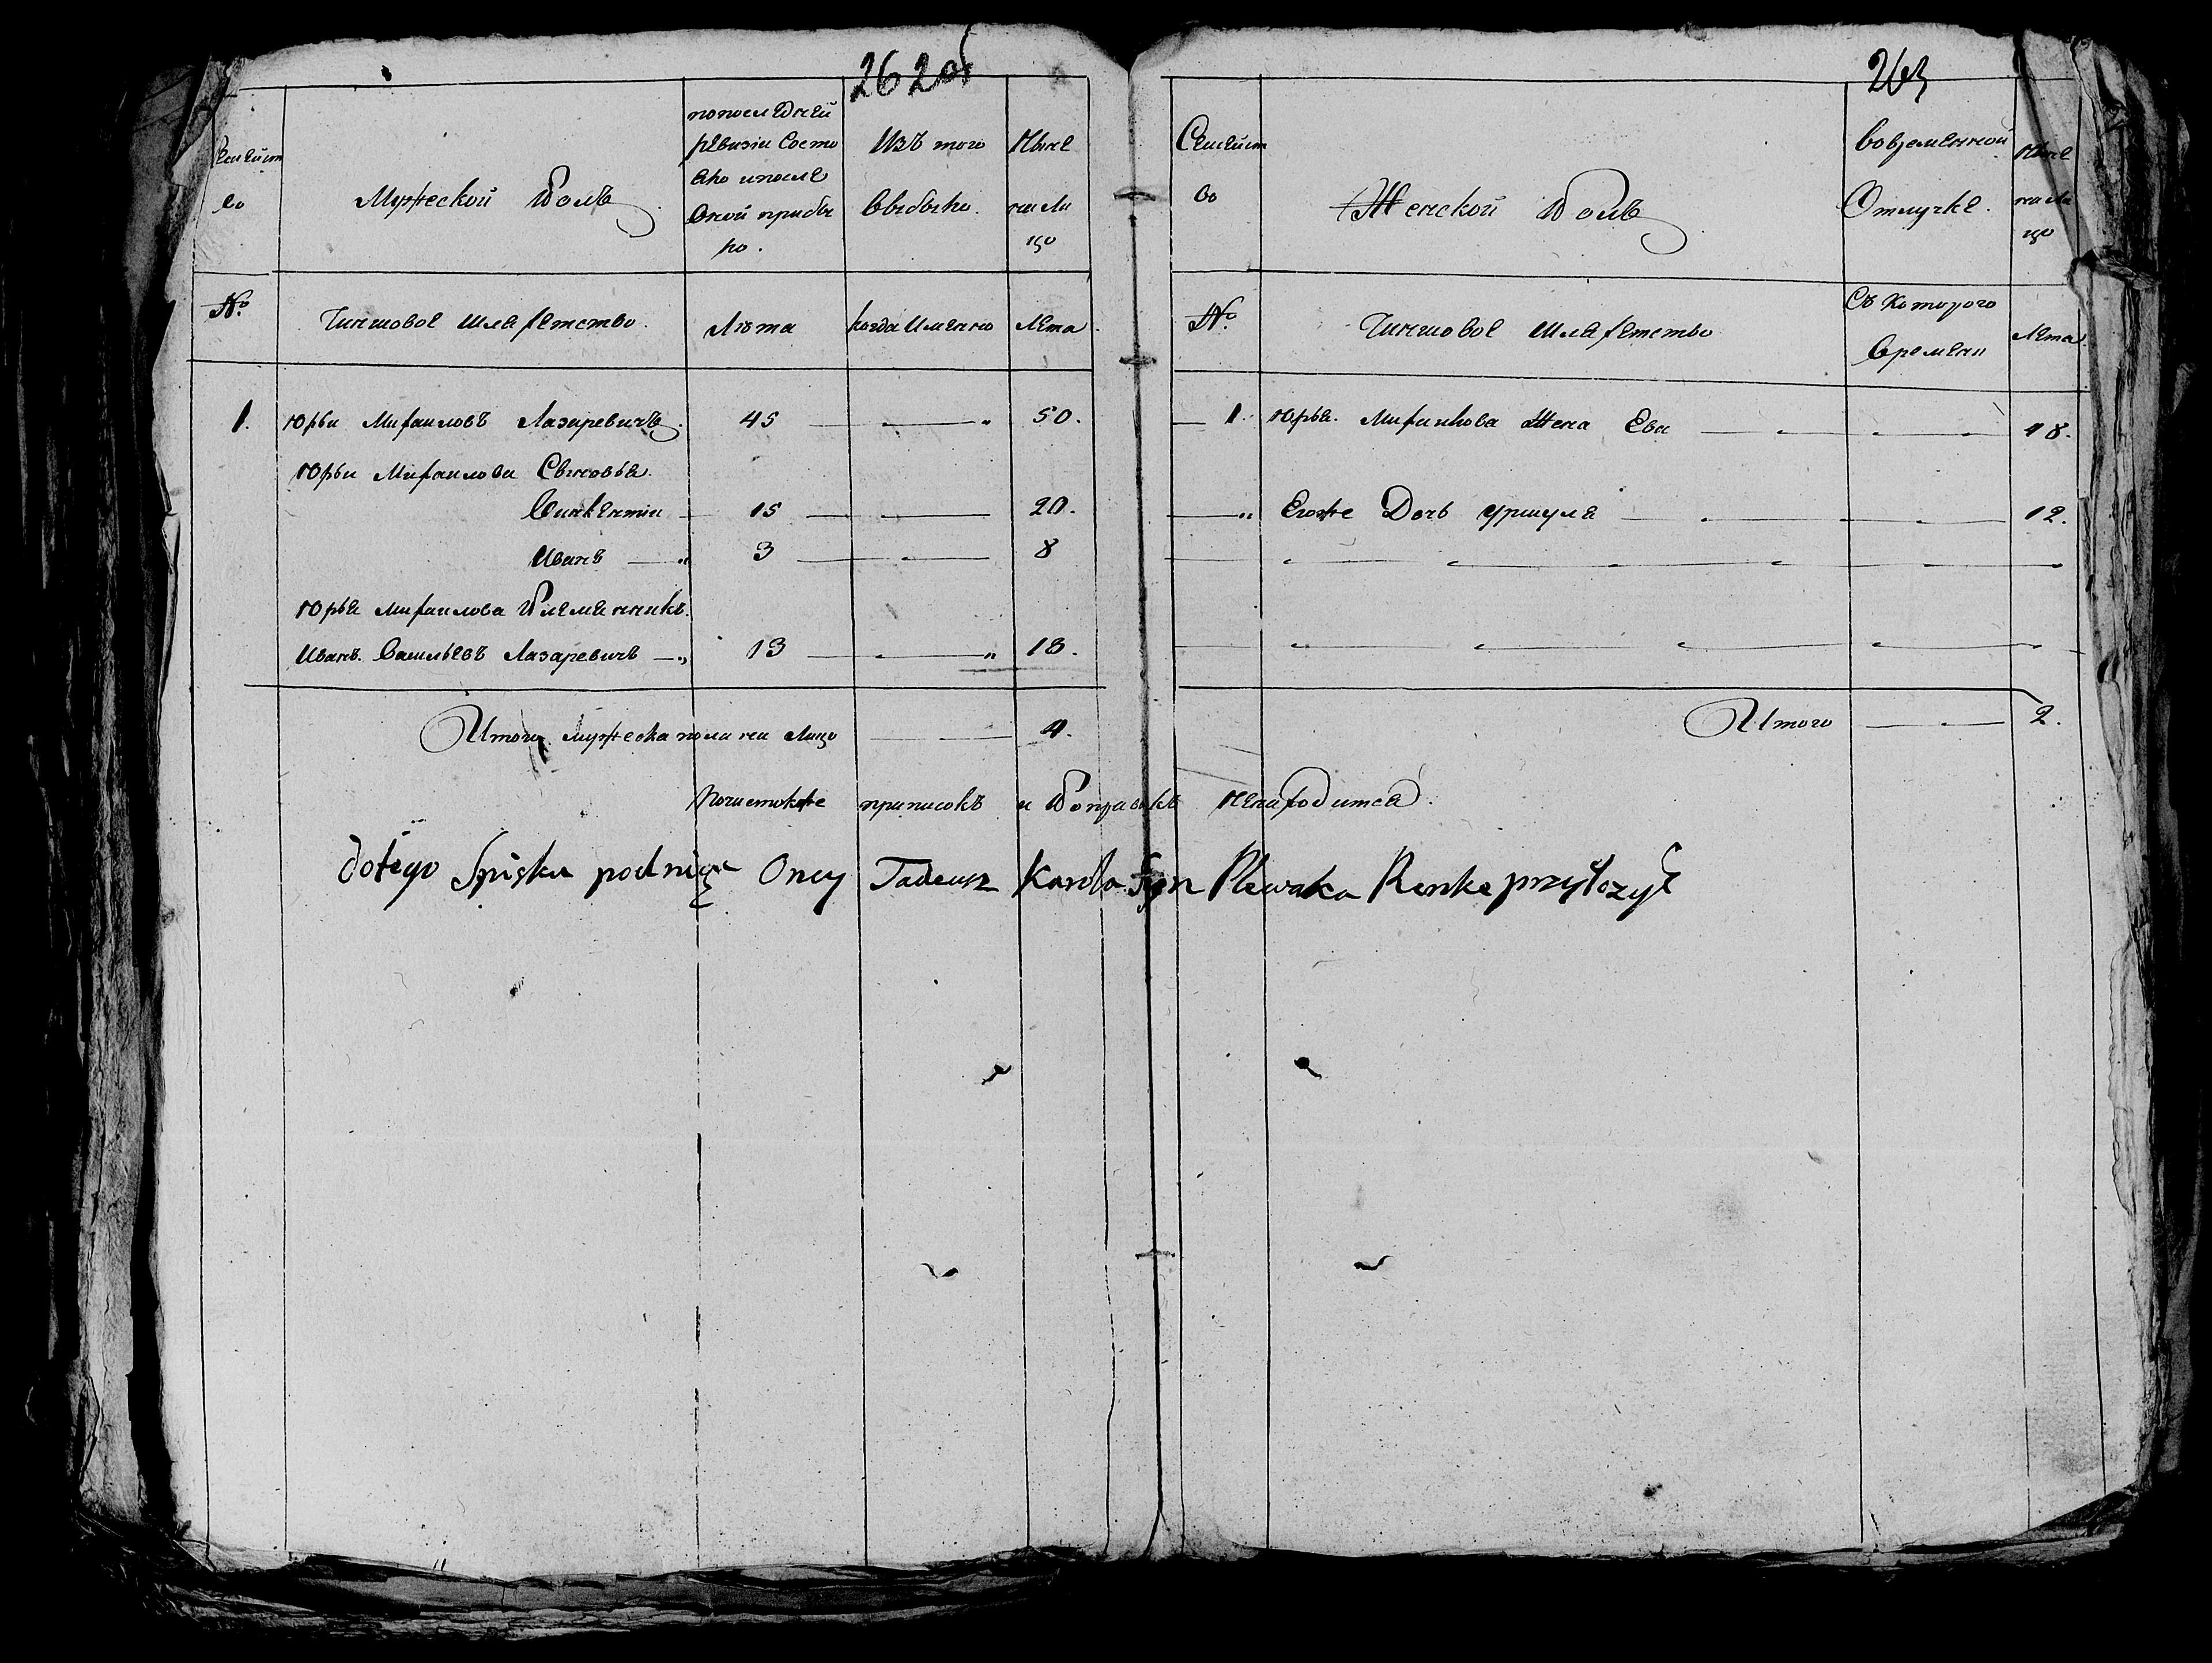 262об
Семейство
Мужеской Полъ
по последней ревизіи Состояло и после оной прибыло.
Изъ того Выбыло.
Ныне на лицо
№
Чиншовое Шляхетство.
Лѣта
когда Именно
Лета
1. Юрьи Михаиловъ Лазаревичъ. 45 — — „ 50.
Юрьи Михаилова Сыновья.
Викентіи — 15 — — 20.
Иванъ — „ 3 — — 8
Юрья Михаилова Племянникъ.
Иванъ Васильевъ Лазаревичъ — „ 13 — — „ 18.
Итого мужеска пола на Лицо — 4.
263
Семейство
Женской Полъ
Во временной Отлучке.
Ныне на лицо
№
Чиншовое Шляхетство
Съ Которого Времени
Лета
1. Юрья Михаилова Жена Ева — — — 48.
„ Егоже Дочь Уршуля — — — 12.
Итого — 2.
Почистокже приписокъ и Поправокъ ненаходится.
dotego Spisku podnię Oney Tadeusz Karola Syn Plewaka Renke przyłożył